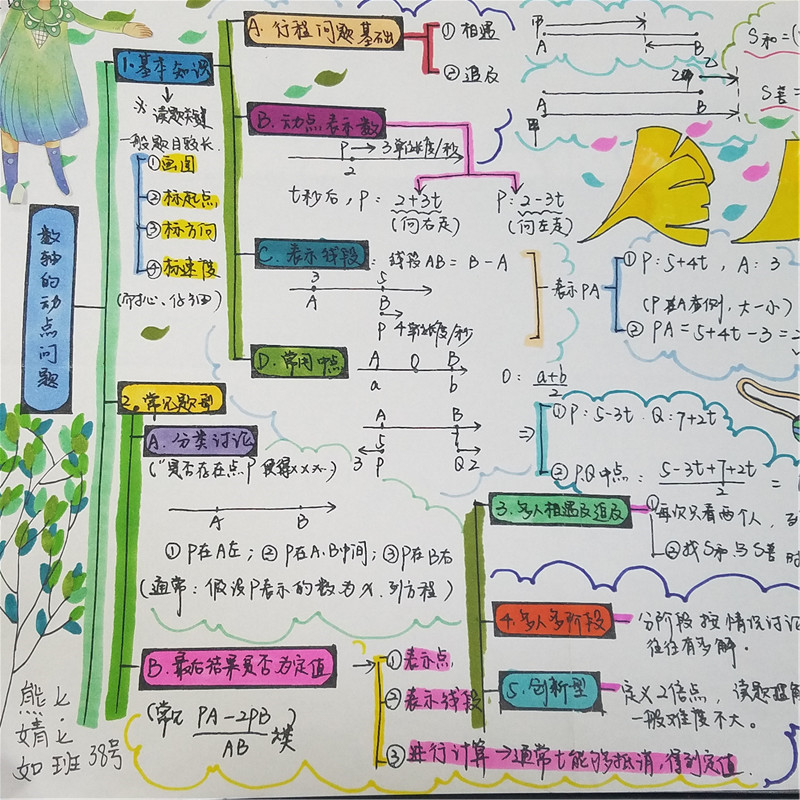 数轴的动点问题
1.基本知识
※读题关键
一般题目较长.
①画图
②标起点
③标方向
④标速度
(耐心、仔细)
A.行程问题基础
①相遇
②追及
甲
A
B
乙
A
B
甲
S和=
S差=
B.动点表示数
P→3单位长度/秒
2
t秒后,P: 2+3t
(向右走)
P: 2-3t
(向左走)
C.表示线段: 线段AB=B-A
3 5
A B
P 4单位长度/秒
表示PA
①P:5+4t, A:3
(P在A右侧,大-小)
②PA=5+4t-3=
D.常用中点
A O B
a b
O: a+b/2
A B
5 7
3 P Q 2
⇒
①P:5-3t. Q:7+2t
②P.Q中点: 5-3t+7+2t/2 =
2.常见题型
A.分类讨论
("是否存在点P使得xxx.)
A B
①P在A左;②P在A.B中间;③P在B右
(通常:假设P表示的数为x.列方程)
B.最后结果是否为定值
(常见 PA-2PB/AB 类)
①表示点.
②表示线段
③进行计算→通常t能够抵消,得到定值.
3.多人相遇及追及
①每次只看两个人,
②找S和与S差时
4.多人多阶段
分阶段按情况讨论
往往有多解.
5.创新型
定义2倍点,读题理解
一般难度不大.
熊婧如
七.七班 38号